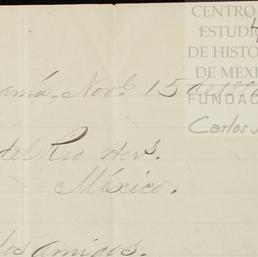 CENTRO
ESTUDI
DE HISTOR
DE MEXI
FUNDAC
Carlos
Nov. 15 de
del Rio Her.s
México.
los amigos.